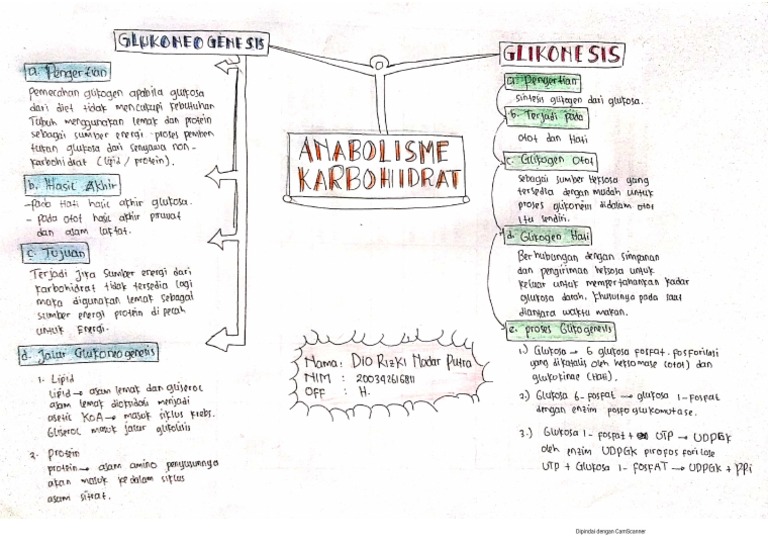 GLUKONEOGENESIS
a. Pengertian
Pemecahan glikogen apabila glukosa
dari diet tidak mencukupi kebutuhan
Tubuh menggunakan lemak dan protein
sebagai sumber energi proses pemben
tukan glukosa dari senyawa non-
karbohidrat (lipid / protein).
b. Hasil Akhir
-pada Hati hasil akhir glukosa.
- pada otot hasil akhir piruvat
dan asam laktat.
c. Tujuan
Terjadi jika sumber energi dari
karbohidrat tidak tersedia lagi
maka digunakan lemak sebagai
sumber energi protein di pecah
untuk Energi.
d. Jalur Glukoneogenesis
1. Lipid
Lipid → asam lemak dan gliserol
asam lemak dioksidasi menjadi
asetil KOA → masuk siklus krebs.
Gliserol masuk jalur glikolisis
2. Protein
protein → asam amino penyusunnya
akan masuk kedalam siklus
asam sitrat.
ANABOLISME
KARBOHIDRAT
Nama: DIO RIZKI Nadar Putra
NIM : 200342616811
OFF : H.
GLIKONESIS
a. Pengertian
sintesis glikogen dari glukosa.
b. Terjadi pada
otot dan Hati
c. Glikogen Otot
sebagai sumber heksosa yang
tersedia dengan mudah untuk
proses glikolisis didalam otot
itu sendiri.
d. Glikogen Hati
Berhubungan dengan simpanan
dan pengiriman heksosa untuk
keluar untuk mempertahankan kadar
glukosa darah, khususnya pada saat
diantara waktu makan.
e. proses Glikogenesis
1.) Glukosa → 6 glukosa fosfat. fosforilasi
yang dikatalis oleh heksonase (otot) dan
glukokinae (Hati).
2.) Glukosa 6-fosfat → glukosa 1-fosfat
dengan enzim fosfo glukomutase.
3.) Glukosa 1- fosfat + UTP → UDPGlk
oleh enzim UDPGlk pirofos forilase
UTP + Glukosa 1- fosfAT → UDPGlk + PPi
Dipindai dengan CamScanner